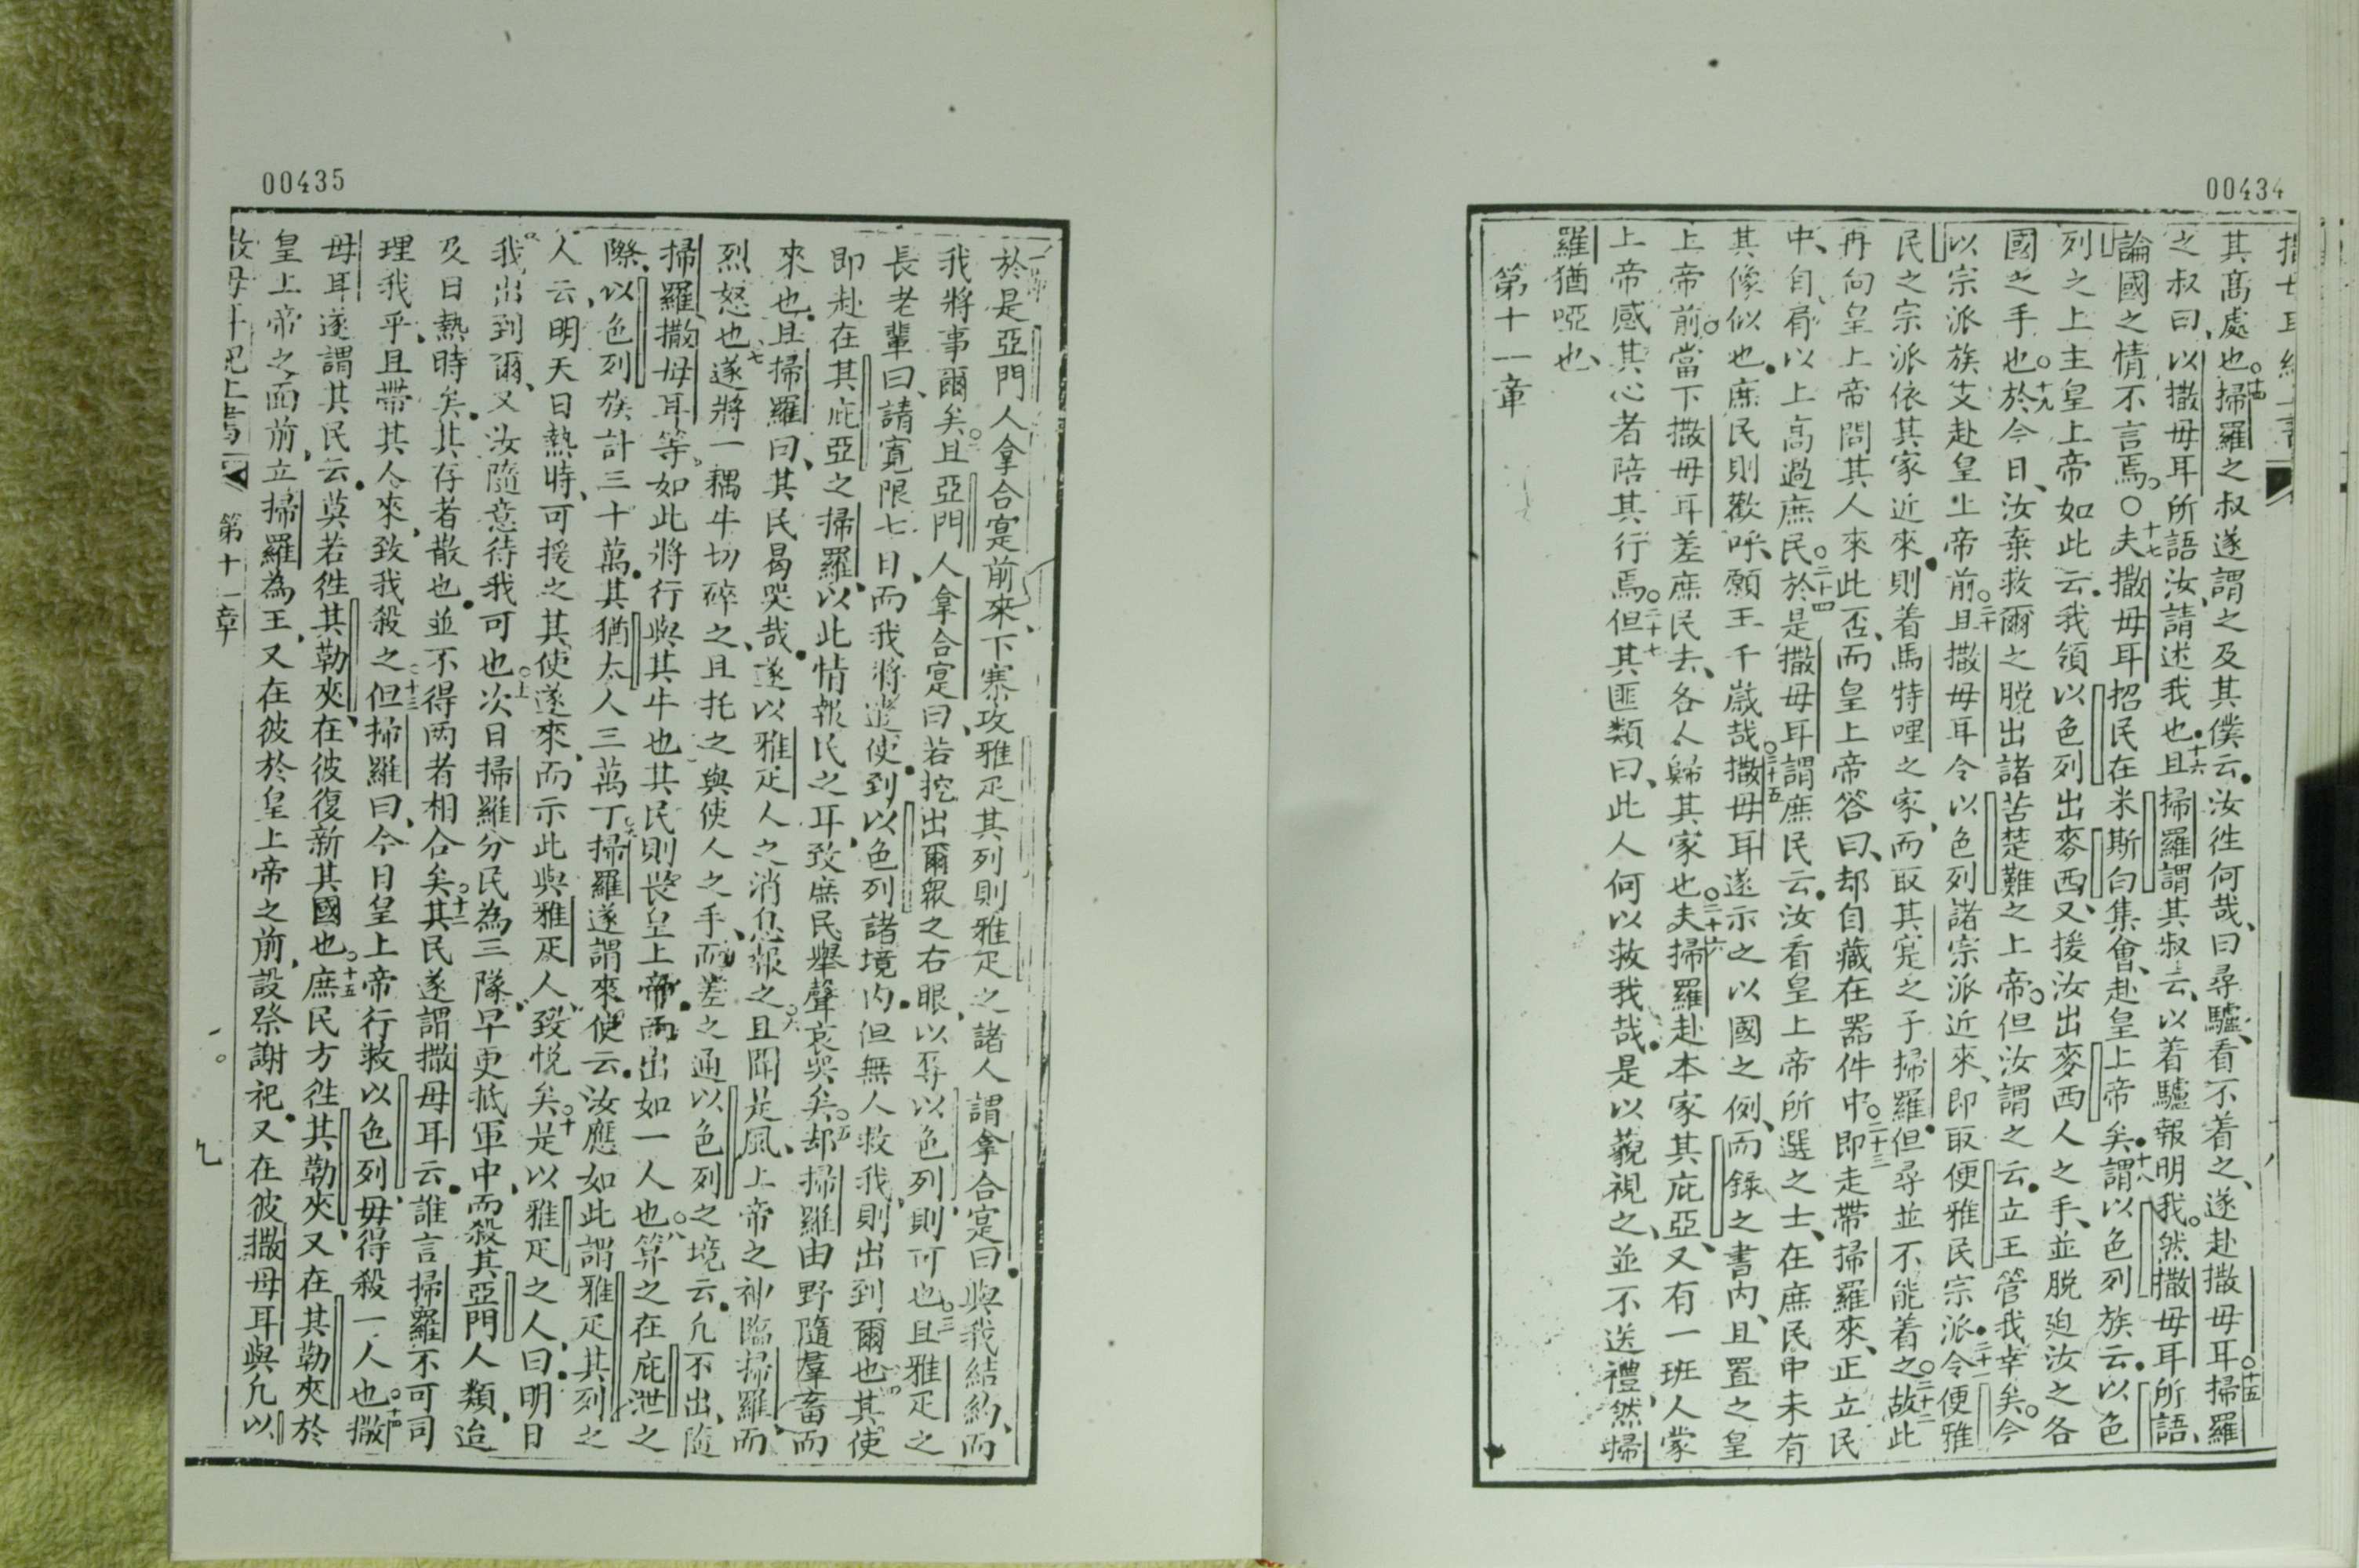 00434
其高處也十四掃羅之叔遂謂之及其僕云汝徃何哉曰尋驢看不着之遂赴撒母耳十五掃羅
之叔曰以撒母耳所語汝請述我也十六且掃羅謂其叔云以着驢報明我然撒母耳所語
論國之情不言焉○十七夫撒母耳招民在米斯白集會赴皇上帝矣十八謂以色列族云以色
列之上主皇上帝如此云我領以色列出麥西又援汝出麥西人之手並脱廹汝之各
國之手也十九於今日汝棄救爾之脱出諸苦楚難之上帝但汝謂之云立王管我幸矣今
以宗派族艾赴皇上帝前二十且撒母耳令以色列諸宗派近來即取便雅民宗派二十一令便雅
民之宗派依其家近來則着馬特哩之家而取其寔之子掃羅但尋並不能着之二十二故此
冉向皇上帝問其人來此否而皇上帝答曰却自藏在器件中二十三即走帶掃羅來正立民
中自肩以上高過庶民二十四於是撒母耳謂庶民云汝看皇上帝所選之士在庶民中未有
其像似也庶民則歡呼願王千歲哉二十五撒母耳遂示之以國之例而錄之書内且置之皇
上帝前當下撒母耳差庶民去各人歸其家也二十六夫掃羅赴本家其庇亞又有一班人蒙
上帝感其心者陪其行焉二十七但其匪類曰此人何以救我哉是以藐視之並不送禮然掃
羅猶啞也
第十一章
00435
於是亞門人拿合寔前來下寨攻雅疋其列則雅疋之諸人謂拿合寔曰與我結約而
我將事爾矣二且亞門人拿合寔曰若挖出爾衆之右眼以辱以色列則可也三且雅疋之
長老輩曰請寬限七日而我將遣使到以色列諸境内但無人救我則出到爾也四其使
即赴在其庇亞之掃羅以此情報民之耳致庶民舉聲哀哭矣五却掃羅由野隨羣畜而
來也且掃羅曰其民曷哭哉遂以雅疋人之消息報之六且聞是風上帝之神臨掃羅而
烈怒也七遂將一耦牛切碎之且托之與使人之手而差之通以色列之境云凢不出隨
掃羅撒母耳等如此將行與其牛也其民則畏皇上帝而出如一人也八算之在庇泄之
際以色列族計三十萬其猶太人三萬丁九掃羅遂謂來使云汝應如此謂雅疋其列之
人云明天日熱時可援之其使遂來而示此與雅疋人致悦矣十是以雅疋之人曰明日
我出到爾又汝隨意待我可也十一次日掃羅分民為三隊早更抵軍中而殺其亞門人類迨
及日熱時矣其存者散也並不得两者相合矣十二其民遂謂撒母耳云誰言掃羅不可司
理我乎且帶其人來致我殺之十三但掃羅曰今日皇上帝行救以色列毋得殺一人也十四撒
母耳遂謂其民云莫若徃其勒夾在彼復新其國也十五庶民方徃其勒夾又在其勒夾於
皇上帝之面前立掃羅為王又在彼於皇上帝之前設祭謝祀又在彼撒母耳與凢以
第十一章